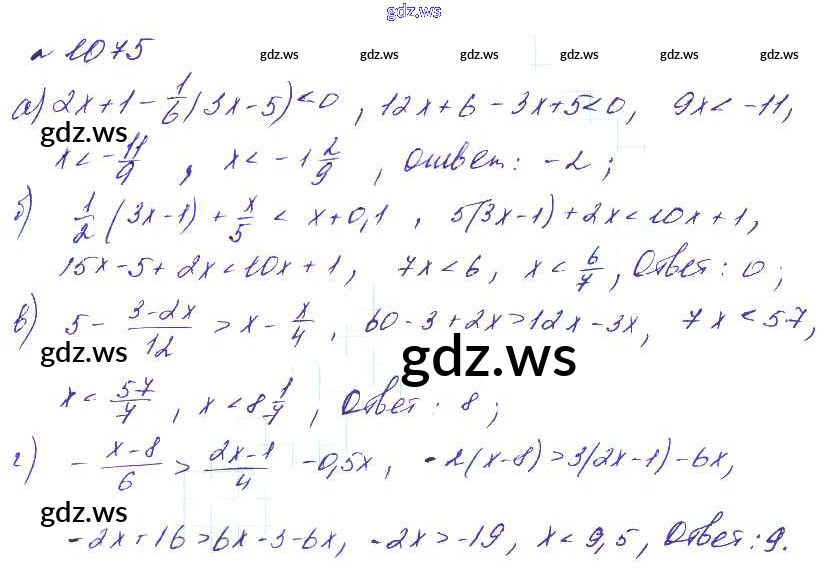 gdz.ws
№ 1075
gdz.ws gdz.ws gdz.ws gdz.ws gdz.ws
а) 2x+1-1/6(3x-5)<0, 12x+6-3x+5<0, 9x<-11,
gdz.ws
x<-11/9, x<-1 2/9, Ответ: -2;
б) 1/2(3x-1)+x/5<x+0,1, 5(3x-1)+2x<10x+1,
15x-5+2x<10x+1, 7x<6, x<6/7, Ответ: 0;
в) 5-(3-2x)/12>x-x/4, 60-3+2x>12x-3x, 7x<57,
gdz.ws gdz.ws
x<57/7, x<8 1/7, Ответ: 8;
г) -(x-8)/6>(2x-1)/4-0,5x, -2(x-8)>3(2x-1)-6x,
gdz.ws
-2x+16>6x-3-6x, -2x>-19, x<9,5, Ответ: 9.